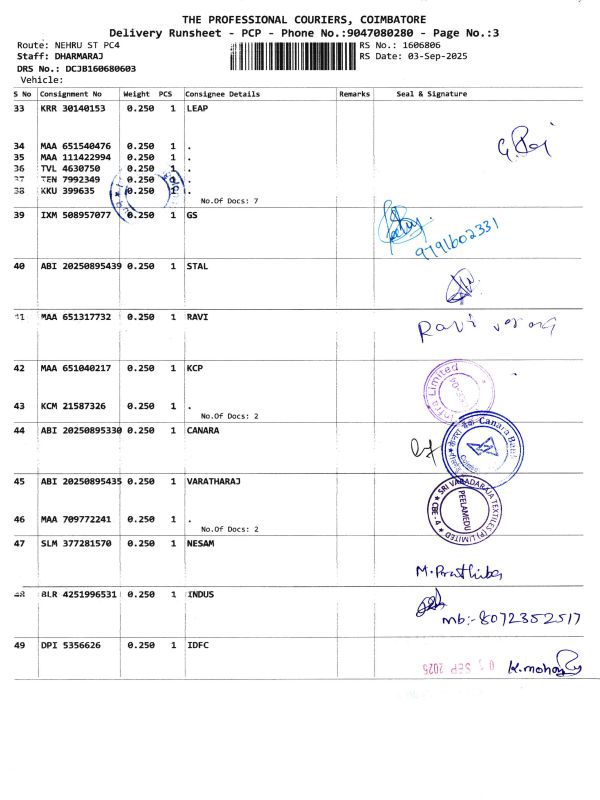 THE PROFESSIONAL COURIERS, COIMBATORE
Delivery Runsheet - PCP - Phone No.:9047080280 - Page No.:3
Route: NEHRU ST PC4 RS No.: 1606806
Staff: DHARMARAJ RS Date: 03-Sep-2025
DRS No.: DCJB160680603
Vehicle:
S No Consignment No Weight PCS Consignee Details Remarks Seal & Signature
33 KRR 30140153 0.250 1 LEAP
34 MAA 651540476 0.250 1 .
35 MAA 111422994 0.250 1 .
36 TVL 4630750 0.250 1 .
37 TEN 7992349 0.250 1 .
38 KKU 399635 0.250 1 .
No.Of Docs: 7
39 IXM 508957077 0.250 1 GS
9791602331
40 ABI 20250895439 0.250 1 STAL
41 MAA 651317732 0.250 1 RAVI
Ravi
42 MAA 651040217 0.250 1 KCP
Infra Limited
43 KCM 21587326 0.250 1 .
No.Of Docs: 2
44 ABI 20250895330 0.250 1 CANARA
केनरा बैंक Canara Bank
45 ABI 20250895435 0.250 1 VARATHARAJ
SRI VARADARAJA TEXTILES (P) LIMITED
PEELAMEDU
CBE - 4
46 MAA 709772241 0.250 1 .
No.Of Docs: 2
47 SLM 377281570 0.250 1 NESAM
M.Prathiba
48 BLR 4251996531 0.250 1 INDUS
mb:-8072352517
49 DPI 5356626 0.250 1 IDFC
SEP 2025 K.mohan